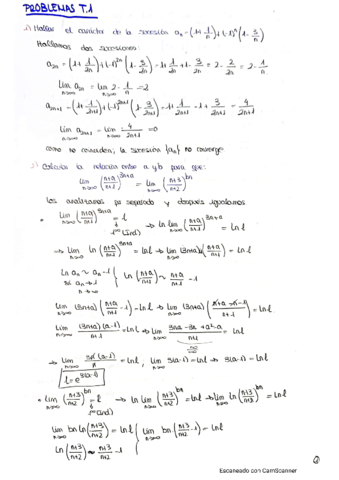 PROBLEMAS T.1
1) Hallar el carácter de la sucesión aₙ = (1+1/n)+(-1)ⁿ(1-3/n)
Hallamos dos sucesiones:
a₂ₙ = (1+1/2n)+(-1)²ⁿ(1-3/2n) = 1+1/2n+1-3/2n = 2-2/2n = 2-1/n
lim a₂ₙ = lim 2-1/n = 2
n→∞ n→∞
a₂ₙ₊₁ = (1+1/2n+1)+(-1)²ⁿ⁺¹(1-3/2n+1) = 1+1/2n+1-1+3/2n+1 = 4/2n+1
lim a₂ₙ₊₁ = lim 4/2n+1 = 0
n→∞ n→∞
como no coinciden, la sucesión {aₙ} no converge
2) Calcular la relación entre a y b para que:
lim (n+a/n+1)³ⁿ⁺ᵃ = lim (n+3/n+2)ᵇⁿ
n→∞ n→∞
Los analizamos por separado y después igualamos
• lim (n+a/n+1)³ⁿ⁺ᵃ = l → ln lim (n+a/n+1)³ⁿ⁺ᵃ = ln l
1^∞ (Ind)
→ lim ln (n+a/n+1)³ⁿ⁺ᵃ = ln l → lim (3n+a) (n+a/n+1) = ln l
ln aₙ ~ aₙ-1 { ln (n+a/n+1) ~ n+a/n+1 -1
si aₙ→1
n→∞
lim (3n+a)(n+a/n+1 -1) = ln l → lim (3n+a)(n+a-n-1/n+1) = ln l
lim (3n+a)(a-1)/n+1 = ln l → lim 3na-3n+a²-a/n+1 = ln l
→ lim 3n(a-1)/n = ln l, lim 3(a-1) = ln l → 3(a-1) = ln l
l = e³⁽ᵃ⁻¹⁾
• lim (n+3/n+2)ᵇⁿ = l → ln lim (n+3/n+2)ᵇⁿ = ln l → lim ln (n+3/n+2)ᵇⁿ = ln l
1^∞ (Ind)
lim bn ln (n+3/n+2) = ln l { lim bn (n+3/n+2 -1) = ln l
ln (n+3/n+2) ~ n+3/n+2 -1
Escaneado con CamScanner